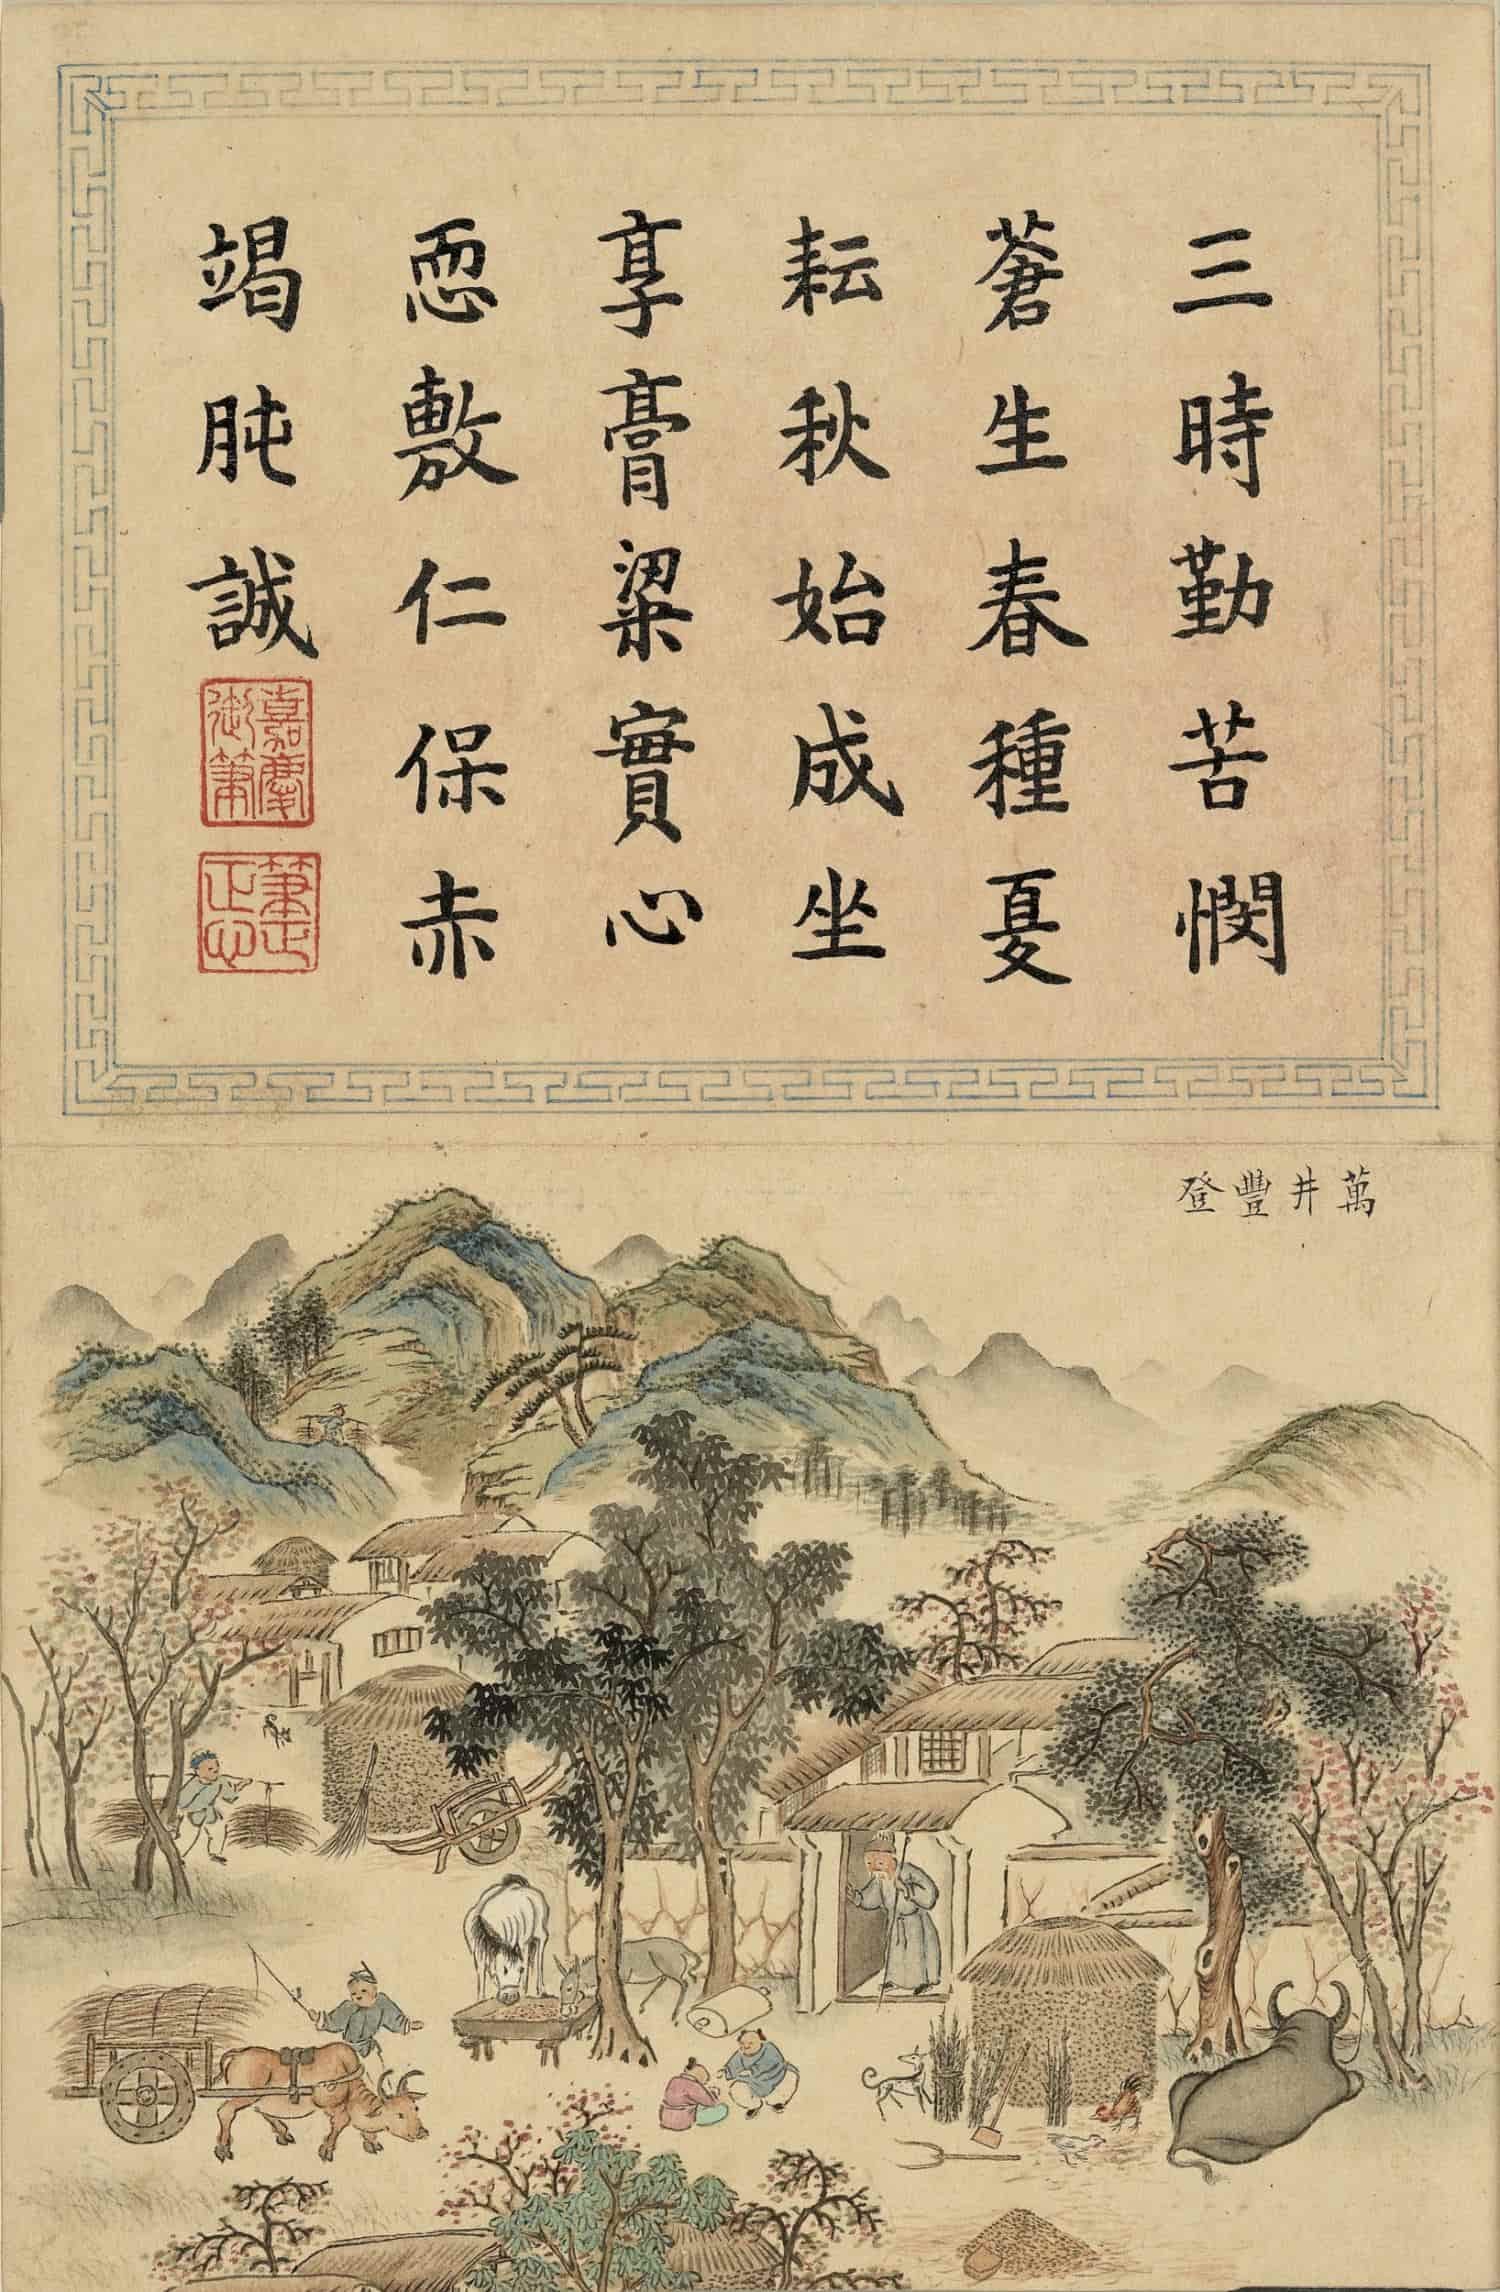 三時勤苦憫
蒼生春種夏
耘秋始成坐
享膏粱實心
恧敷仁保赤
竭肫誠
嘉慶
御筆
萬井豐登